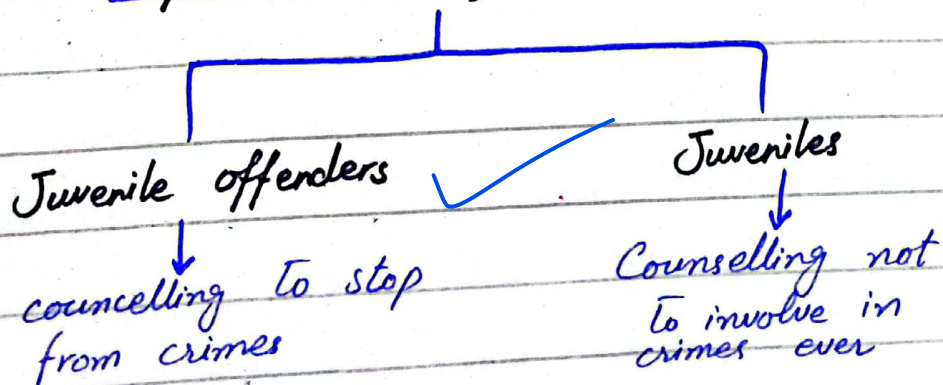 Juvenile offenders
Juveniles
councelling to stop
from crimes
Counselling not
to involve in
crimes ever